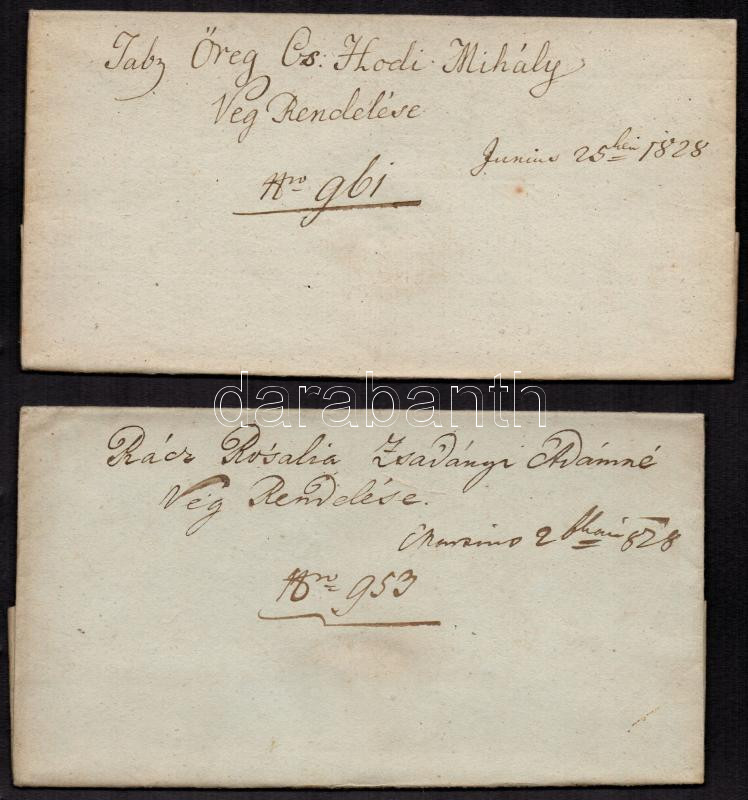 Tabz Öreg Cs: Hodi Mihály
Veg Rendelése
Junius 25 1828
Nro 961
darabanth
Rácz Rosalia Zsadányi Adámné
Vég Rendelése.
Marzius 2 828
Nro 953